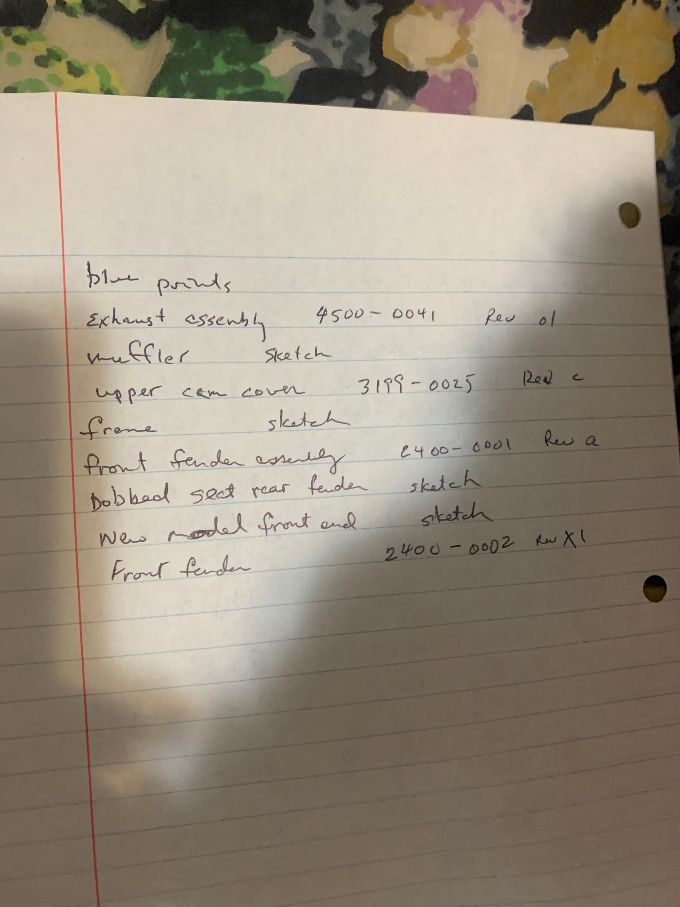 blue prints
Exhaust assembly 4500-0041 Rev 01
muffler sketch
upper cam cover 3199-0025 Rev c
frame sketch
front fender assembly 2400-0001 Rev a
Dobbed seat rear fender sketch
New model front end sketch
Front fender 2400-0002 Rev X1